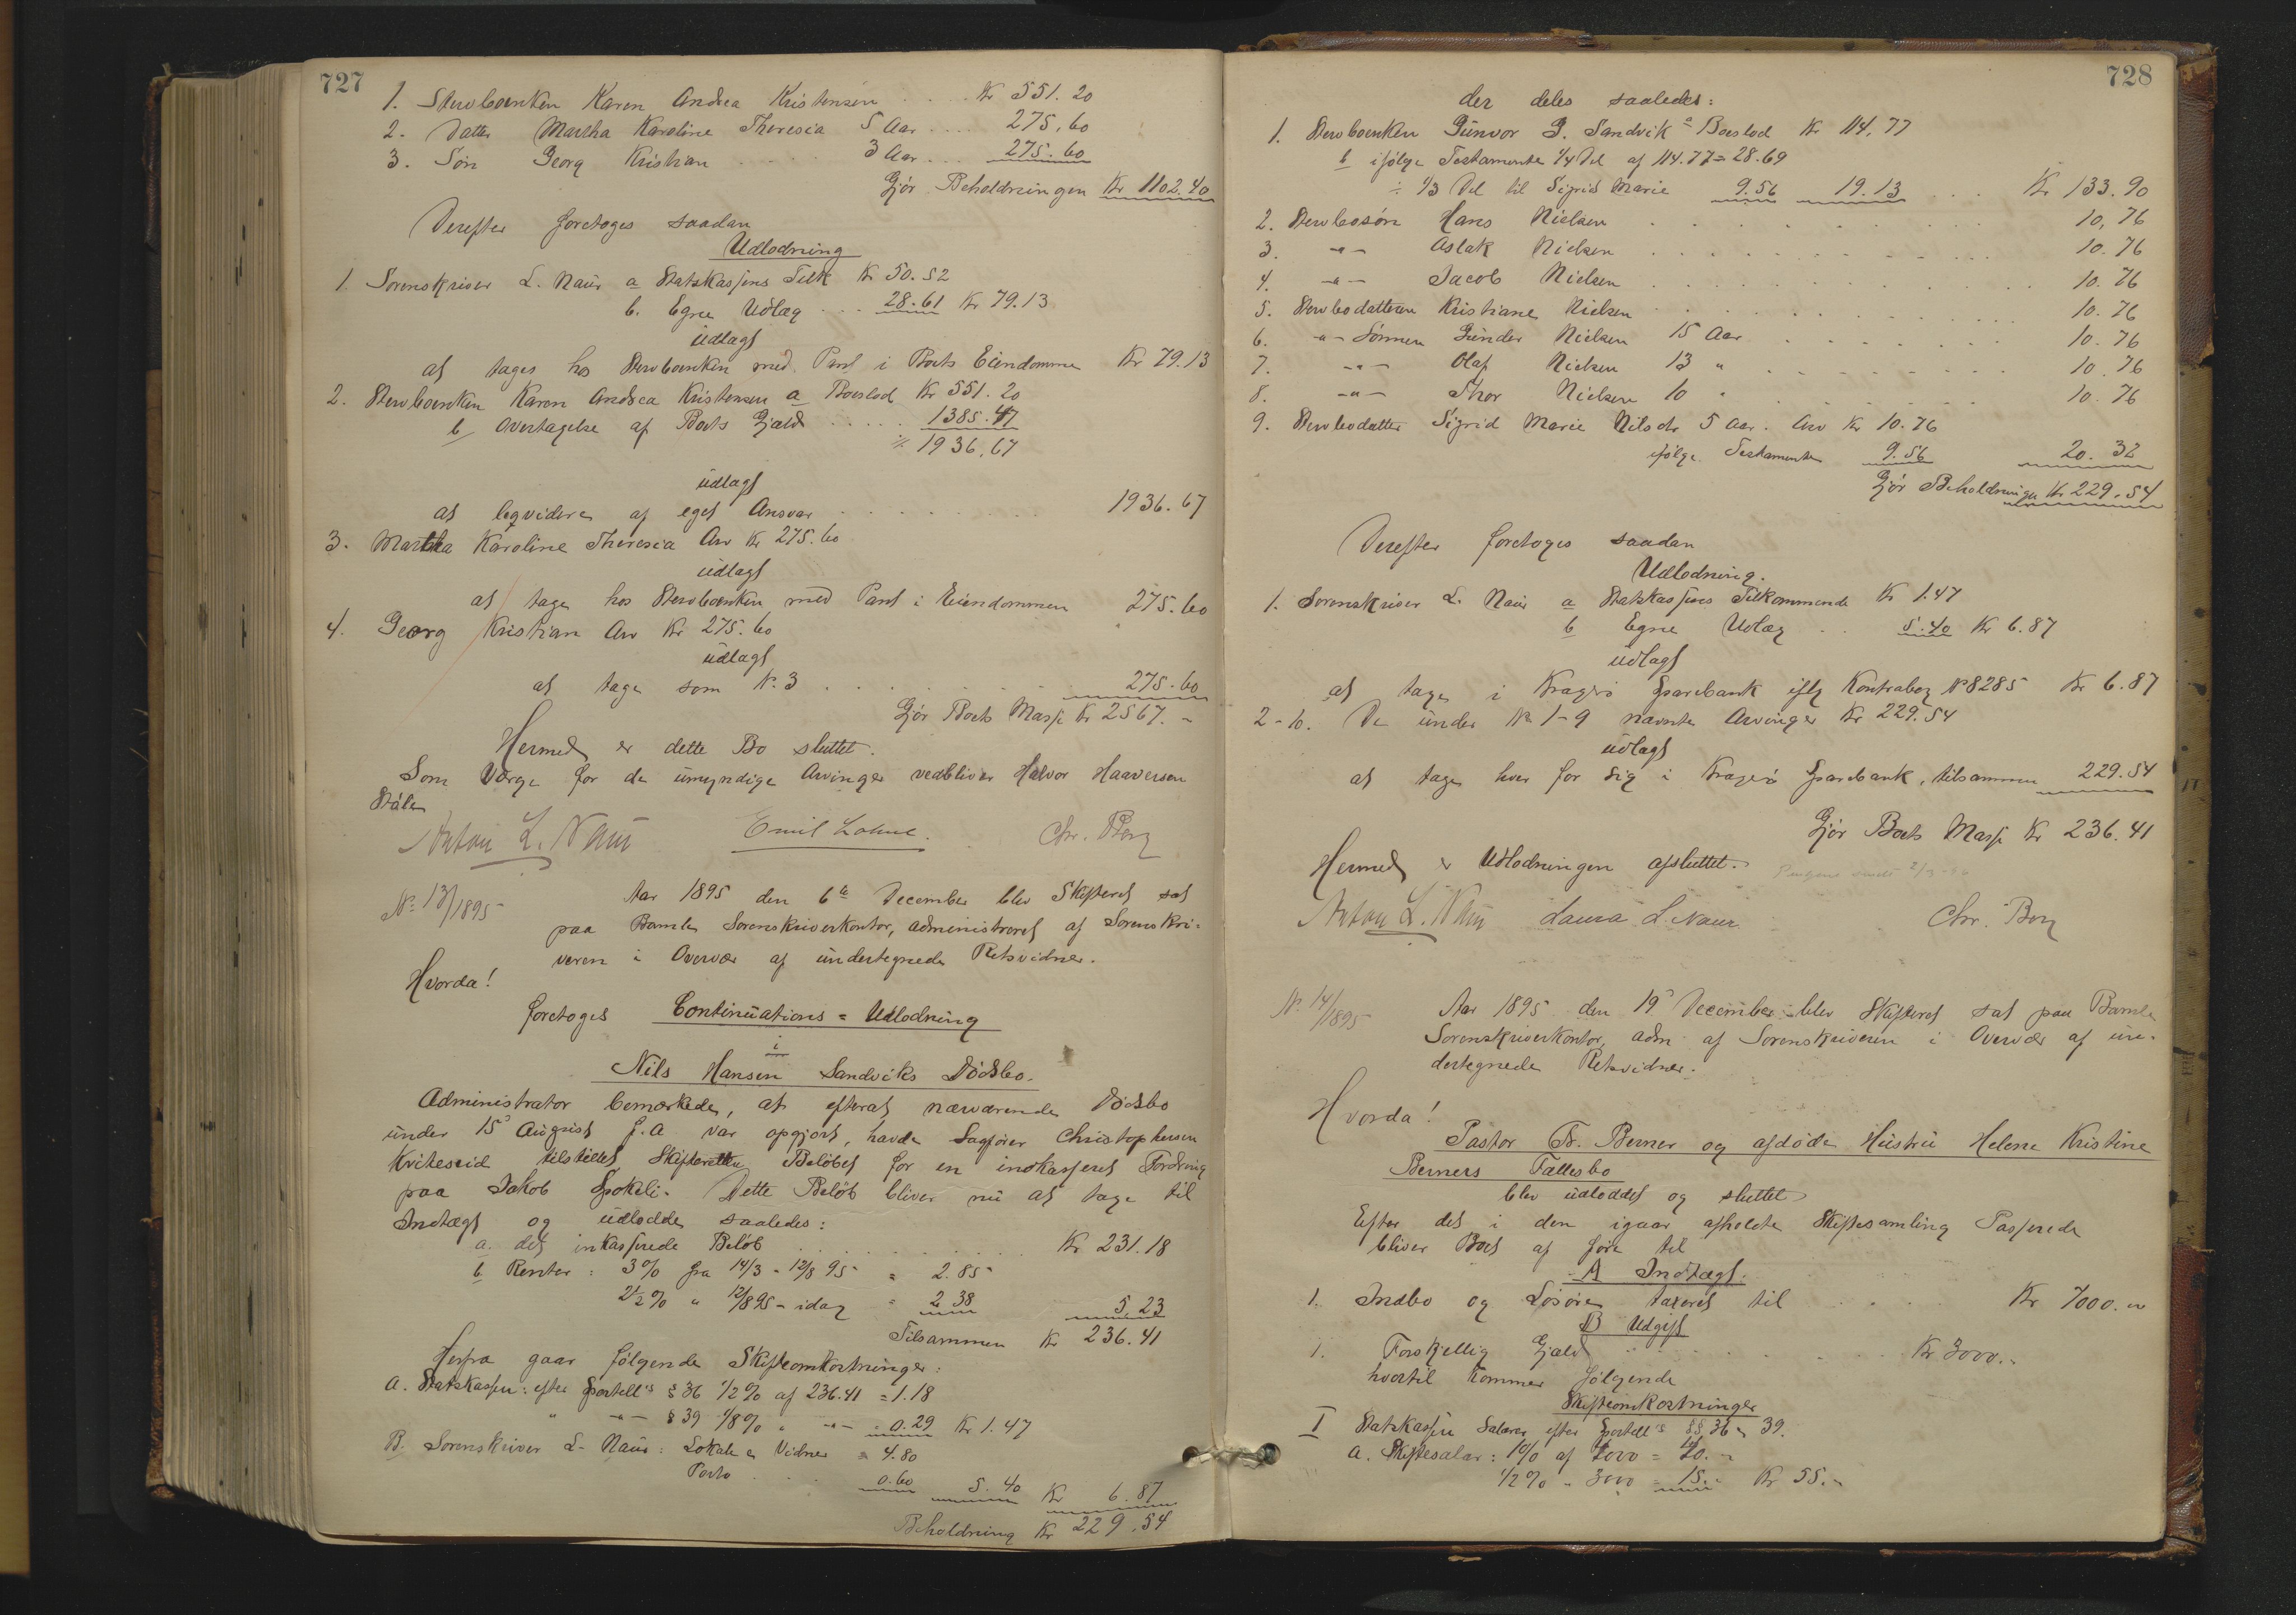 727
1. Stervboenken Karen Andrea Kristensen . . . . Kr 551.20
2. Datter Martha Karoline Theresia 5 Aar . . . . 275.60
3. Søn Georg Kristian . . . . 3 Aar . . . 275.60
Gjør Beholdningen Kr 1102.40
Derefter foretoges saadan
Udlodning
1. Sorenskriver L. Naur a Statskassens Tilk Kr 50.52
b. Egne Udlæg . . . 28.61 Kr 79.13
udlagt
at tages hos Stervboenken med Pant i Boets Eiendomme Kr 79.13
2. Stervboenken Karen Andrea Kristensen a Boeslod Kr 551.20
b Overtagelse af Boets Gjæld . . . . . 1385.47
1936.67
udlagt
at liqvidere af eget Ansvar . . . . . . . . 1936.67
3. Martha Karoline Theresia Arv Kr 275.60
udlagt
at tage hos Stervboenken med Pant i Eiendommen 275.60
4. Georg Kristian Arv Kr 275.60
udlagt
at tage som No. 3 . . . . . . . . 275.60
Gjør Boets Masse Kr 2567. "
Hermed er dette Bo sluttet.
Som Værge for de umyndige Arvinger vedbliver Halvor Haaversen
Anton L. Naur Emil Lohne. Chr. Berg
No. 13/1895
Aar 1895 den 6te December blev Skifteret sat
paa Bamle Sorenskriverkontor, administreret af Sorenskri-
veren i Overvær af undertegnede Retsvidner.
Hvorda!
foretoges Continuations = Udlodning
i
Nils Hansen Sandviks Dødsbo.
Administrator bemærkede, at efterat nærværende Dødsbo
under 15de August f.A var opgjort, havde Sagfører Christophersen
Kviteseid tilstillet Skifteretten Beløbet for en indkasseret Fordring
paa Jakob Spokeli. Dette Beløb bliver nu at tage til
Indtægt og udlodde saaledes:
a. det inkasserede Beløb . . . . . . . . . . Kr 231.18
b Renter : 3% fra 14/3 - 12/8 95 = 2.85
2½% " 12/8 95 - idag = 2.38 5.23
Tilsammen Kr 236.41
Herfra gaar følgende Skifteomkostninger:
A. Statskassen: efter Sportell's § 36 1/2% af 236.41 = 1.18
" -"- § 39 1/8% " -"- = 0.29 Kr 1.47
B. Sorenskriver L. Naur: Lokale & Vidner = 4.80
Porto . . . . 0.60 5.40 Kr 6.87
Beholdning Kr 229.54
728
der deles saaledes:
1. Stervboenken Gunvor G. Sandvik a Boeslod Kr 114.77
b ifølge Testamente 1/4 Del af 114.77 = 28.69
÷ 1/3 Del til Sigrid Marie 9.56 19.13 . . . Kr 133.90
2. Stervbosøn Hans Nielsen . . . . . . . . 10.76
3. -"- Aslak Nielsen . . . . . . . . 10.76
4. -"- Jacob Nielsen . . . . . . . . 10.76
5. Stervbodatteren Kristiane Nielsen . . . . . . . . 10.76
6. -"- Sønnen Gunder Nielsen 15 Aar . . . . . . . 10.76
7. -"- Olaf Nielsen 13 " . . . . . . . 10.76
8. -"- Thor Nielsen 10 " . . . . . . . 10.76
9. Stervbodatter Sigrid Marie Nilsdr 5 Aar. Arv Kr 10.76
ifølge Testamente 9.56 20.32
Gjør Beholdningen Kr 229.54
Derefter foretoges saadan
Udlodning.
1. Sorenskriver L. Naur a Statskassens Tilkommende Kr 1.47
b Egne Udlæg . . 5.40 Kr 6.87
udlagt
at tage i Kragerø Sparebank iflg Kontrabog No 8285 Kr 6.87
2-10. De under No 1-9 nævnte Arvinger Kr 229.54
udlagt
at tage hver for sig i Kragerø Sparebank, tilsammen 229.54
Gjør Boets Masse Kr 236.41
Hermed er Udlodningen afsluttet.
Anton L. Naur Laura L. Naur. Chr. Berg
No. 14/1895
Aar 1895 den 19de December blev Skifteret sat paa Bamle
Sorenskriverkontor, adm af Sorenskriveren i Overvær af un-
dertegnede Retsvidner.
Hvorda!
Pastor Fr. Berner og afdøde Hustru Helene Kristine
Berners Fællesbo
blev udloddet og sluttet
Efter det i den igaar afholdte Skiftesamling Passerede
bliver Boet at føre til
A Indtægt.
1. Indbo og Løsøre taxeret til . . . . Kr 7000. "
B Udgift
1. Forskjellig Gjæld . . . . . . . . Kr 3000. "
hvortil kommer følgende
Skifteomkostninger
I Statskassen Salærer efter Sportell's §§ 36 & 39.
a. Skiftesalær: 1% af 4000 = 40. "
1/2% " 3000 = 15. " Kr 55. "